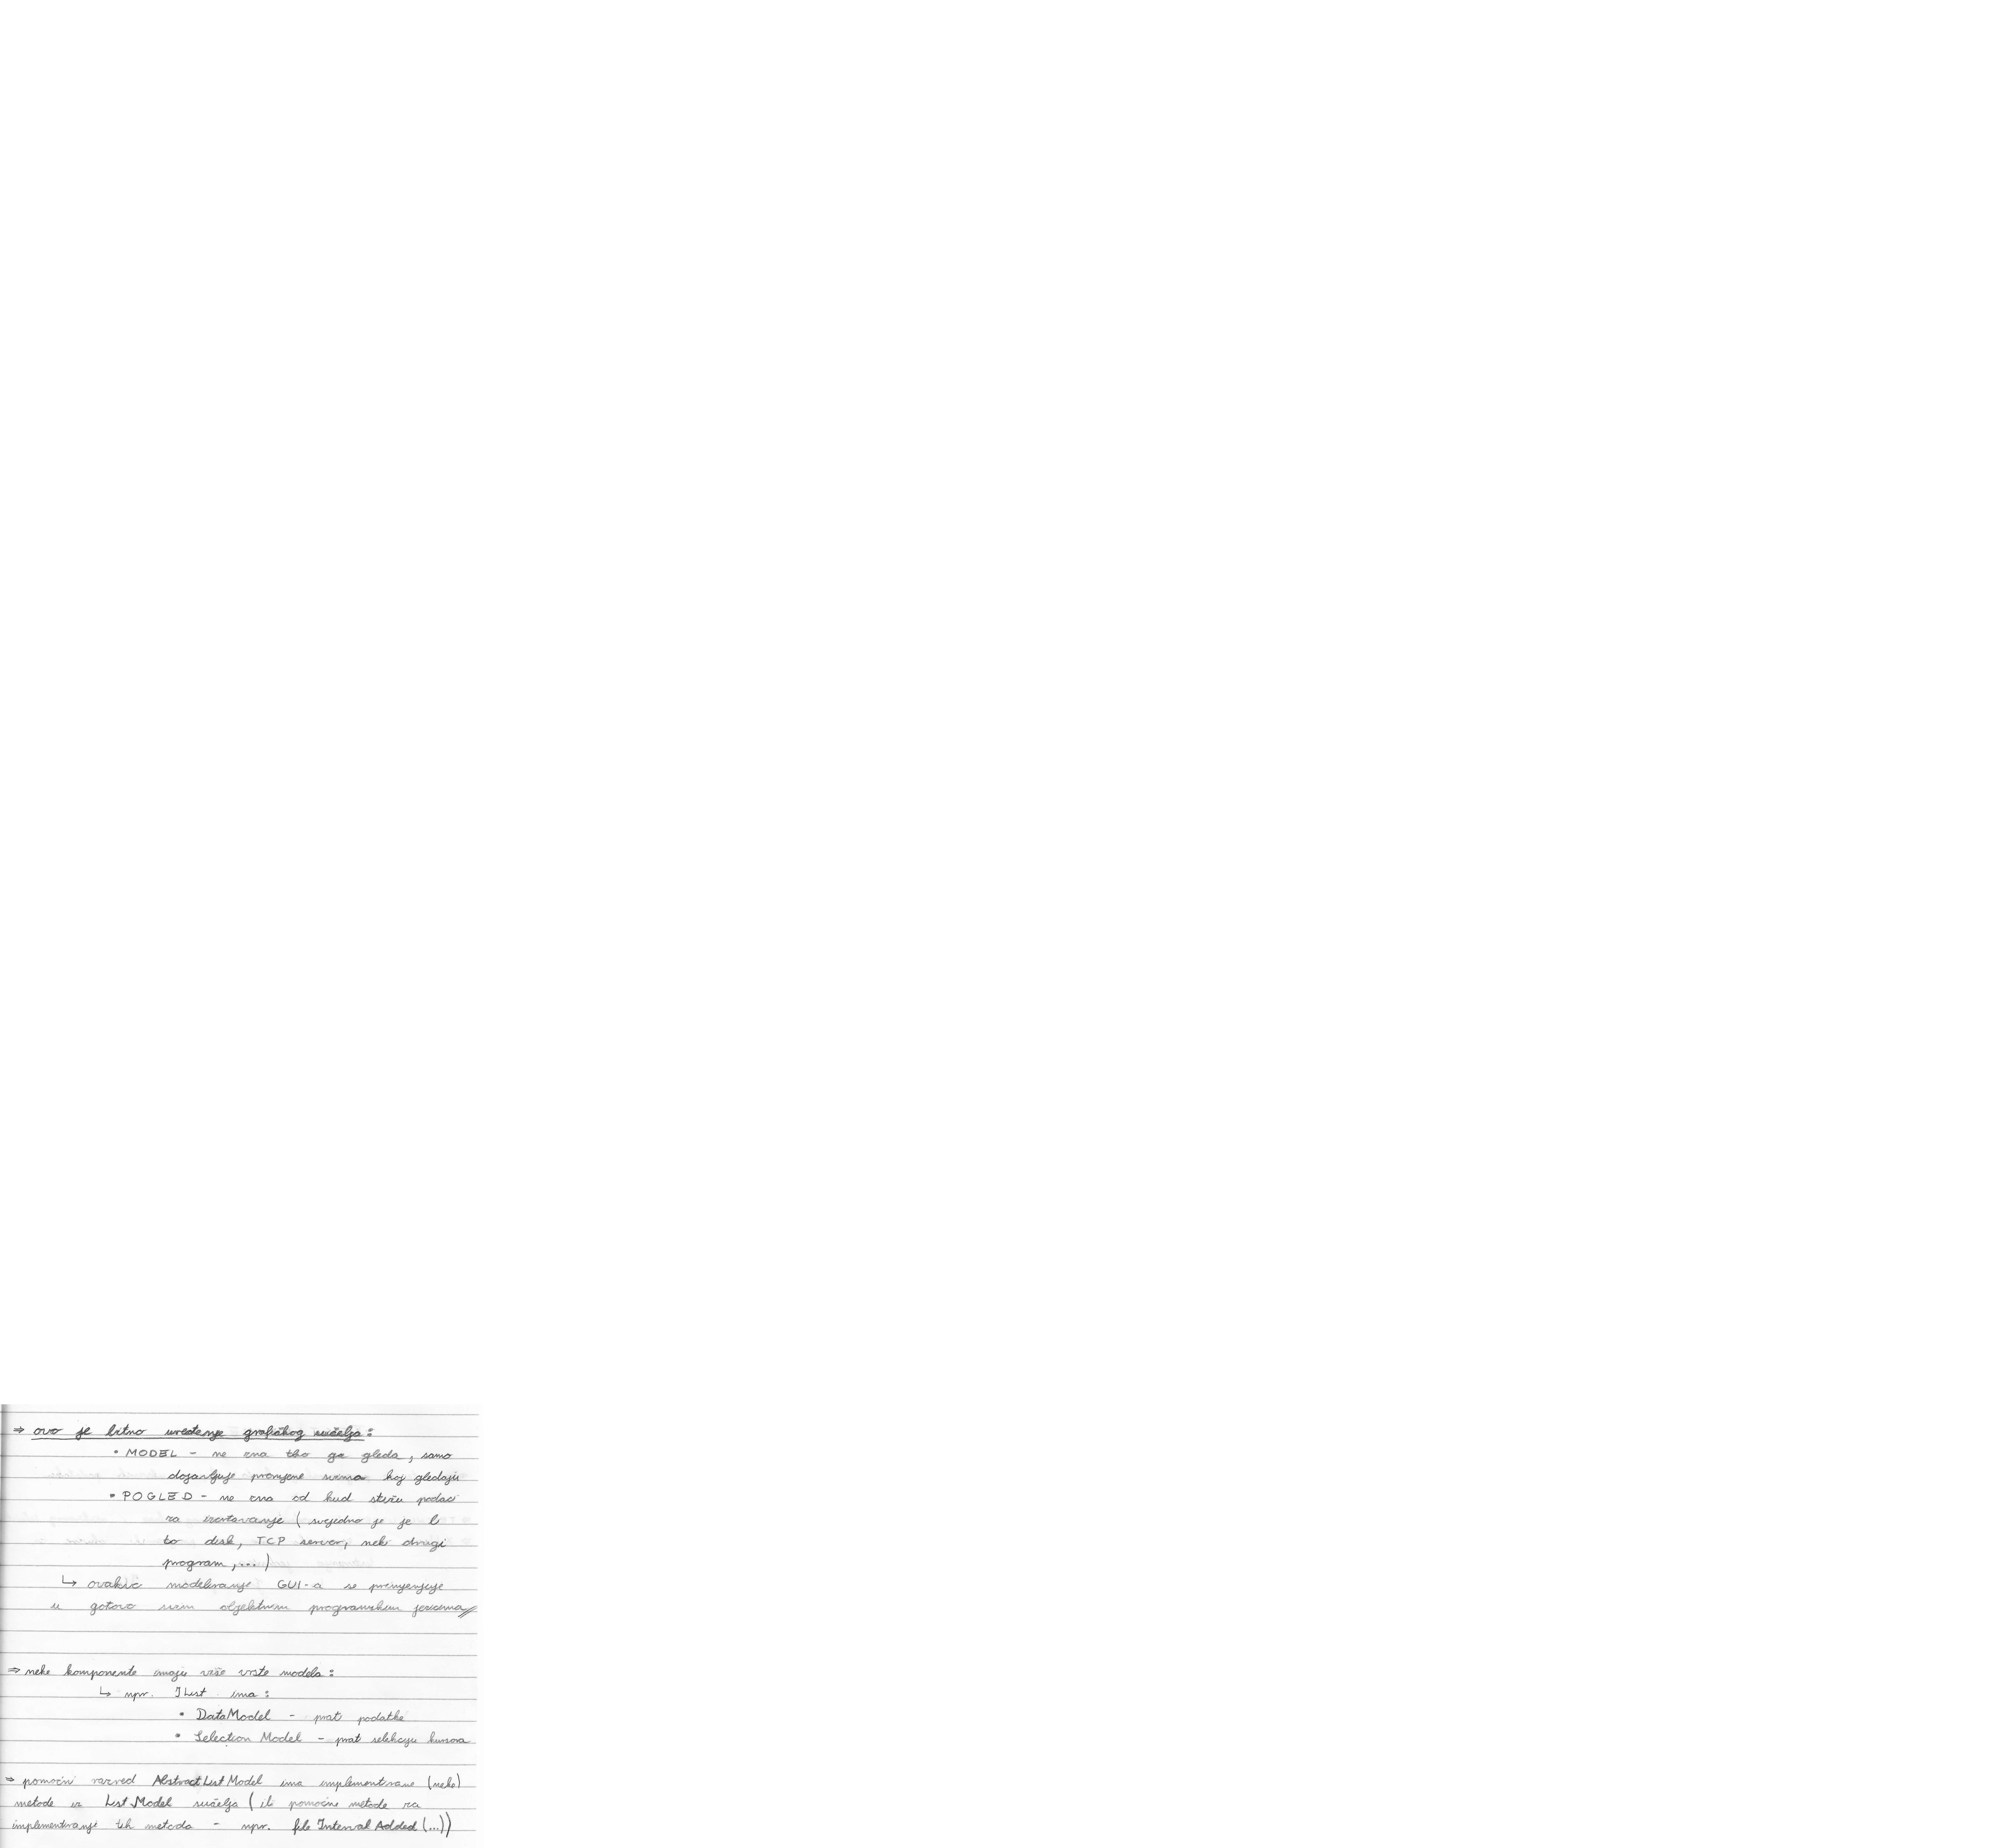 ⇒ ovo je bitno uređenje grafičkog sučelja:
• MODEL - ne zna tko ga gleda, samo
dojavljuje promjene svima koji gledaju
• POGLED - ne zna od kud stižu podaci
za iscrtavanje (svejedno je je li
to disk, TCP server, neki drugi
program, ...)
↳ ovakvo modeliranje GUI-a se primjenjuje
u gotovo svim objektnim programskim jezicima//
⇒ neke komponente imaju više vrste modela:
↳ npr. JList ima:
• DataModel - prati podatke
• Selection Model - prati selekciju kursora
⇒ pomoćni razred AbstractListModel ima implementirane (neke)
metode iz ListModel sučelja (ili pomoćne metode za
implementiranje tih metoda - npr. Interval Added (...))